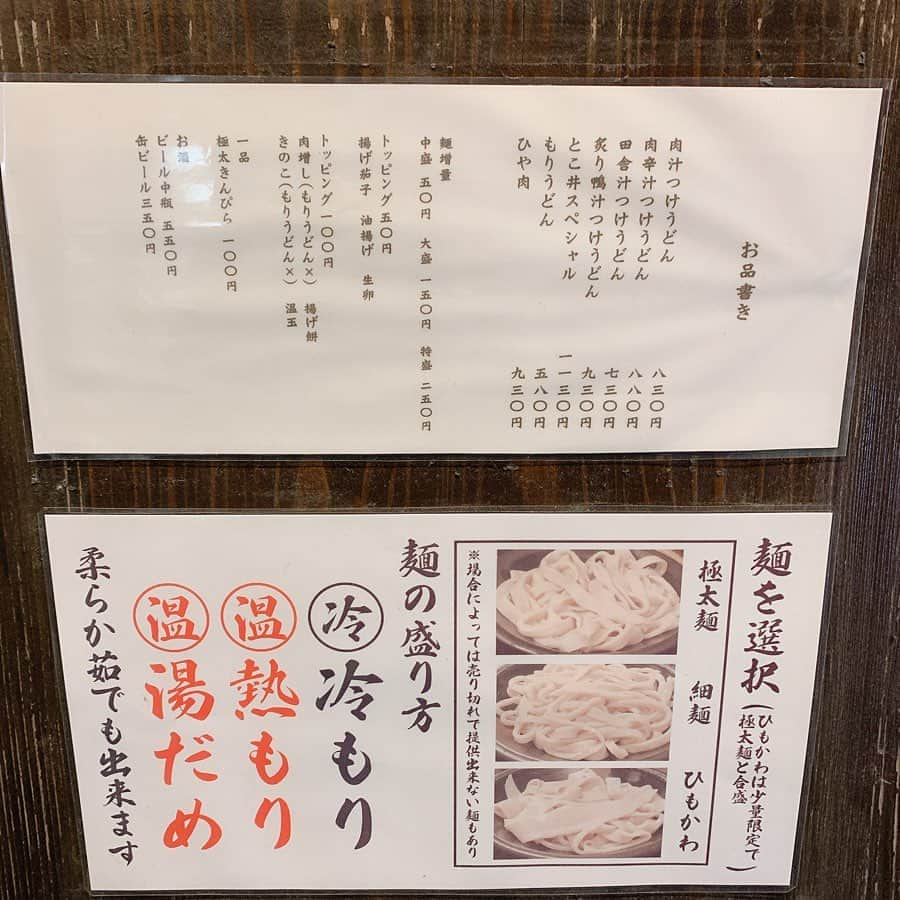 お品書き
肉汁つけうどん 八三〇円
肉辛汁つけうどん 八八〇円
田舎汁つけうどん 七三〇円
炙り鴨汁つけうどん 九三〇円
とこ井スペシャル 一一三〇円
もりうどん 五八〇円
ひや肉 九三〇円
麺増量
中盛 五〇円 大盛 一五〇円 特盛 二五〇円
トッピング 五〇円
揚げ茄子 油揚げ 生卵
トッピング 一〇〇円
肉増し(もりうどん×) 揚げ餅
きのこ(もりうどん×) 温玉
一品
極太きんぴら 一〇〇円
お酒
ビール中瓶 五五〇円
缶ビール 三五〇円
麺を選択(ひもかわは少量限定で
極太麺と合盛)
極太麺
細麺
ひもかわ
※場合によっては売り切れで提供出来ない麺もあり
麺の盛り方
冷 冷もり
温 熱もり
温 湯だめ
柔らか茹でも出来ます